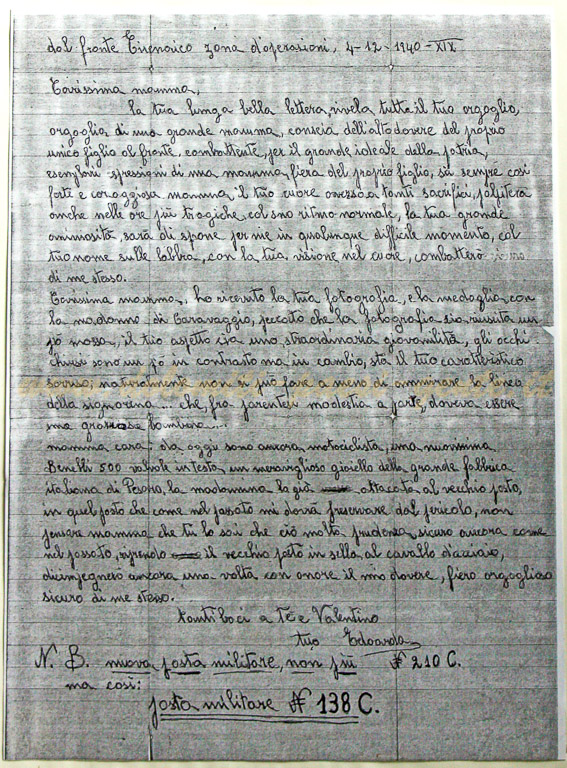 dal fronte Cirenaico zona d'operazioni, 4-12-1940-XIX
Carissima mamma,
la tua lunga bella lettera, rivela tutto il tuo orgoglio,
orgoglio di una grande mamma, conscia dell'alto dovere del proprio
unico figlio al fronte, combattente, per il grande ideale della patria,
esemplari espressioni di una mamma fiera del proprio figlio, sii sempre così
forte e coraggiosa mamma, il tuo cuore avvezzo a tanti sacrifici, palpiterà
anche nelle ore più tragiche, col suo ritmo normale, la tua grande
animosità, sarà di sprone per me in qualunque difficile momento, col
tuo nome sulle labbra, con la tua visione nel cuore, combatterò
di me stesso.
Carissima mamma, ho ricevuto la tua fotografia, e la medaglia con
la madonna di Caravaggio, peccato che la fotografia sia riuscita un
pò mossa, il tuo aspetto è una straordinaria giovanilità, gli occhi
chiusi sono un pò in contrasto ma in cambio, sta il tuo caratteristico
sorriso; naturalmente non si può fare a meno di ammirare la linea
della signorina... che, fra parentesi modestia a parte, doveva essere
una graziosa bambina....
mamma cara: da oggi sono ancora motociclista, una nuovissima
Benelli 500 valvole in testa un meraviglioso gioiello della grande fabbrica
italiana di Pesaro, la madonnina la già attaccata al vecchio posto,
in quel posto che come nel passato mi dovrà preservare dal pericolo, non
pensare mamma che tu lo sai che ciò molta prudenza, sicuro ancora come
nel passato, riprendo il vecchio posto in sella al cavallo d'acciaio,
disimpegnerò ancora una volta con onore il mio dovere, fiero orgoglioso
sicuro di me stesso.
tanti baci a te e Valentino
tuo Edoardo
N. B. nuova posta militare, non più N 210 C.
ma così:
posta militare N 138 C.